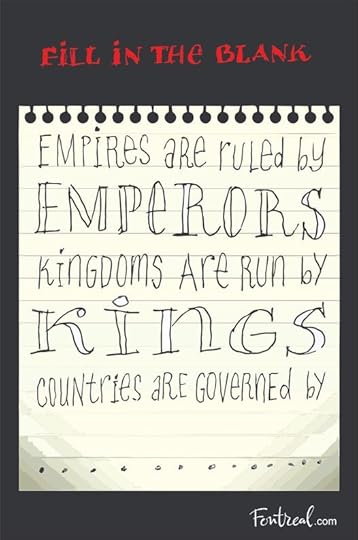 FiLL iN THE BLANK
EMPiRES ARE RULED by
EMPERORS
KiNGDOMS ARE RUN by
KiNGS
COUNTRiES ARE GOVERNED by
Fontreal.com